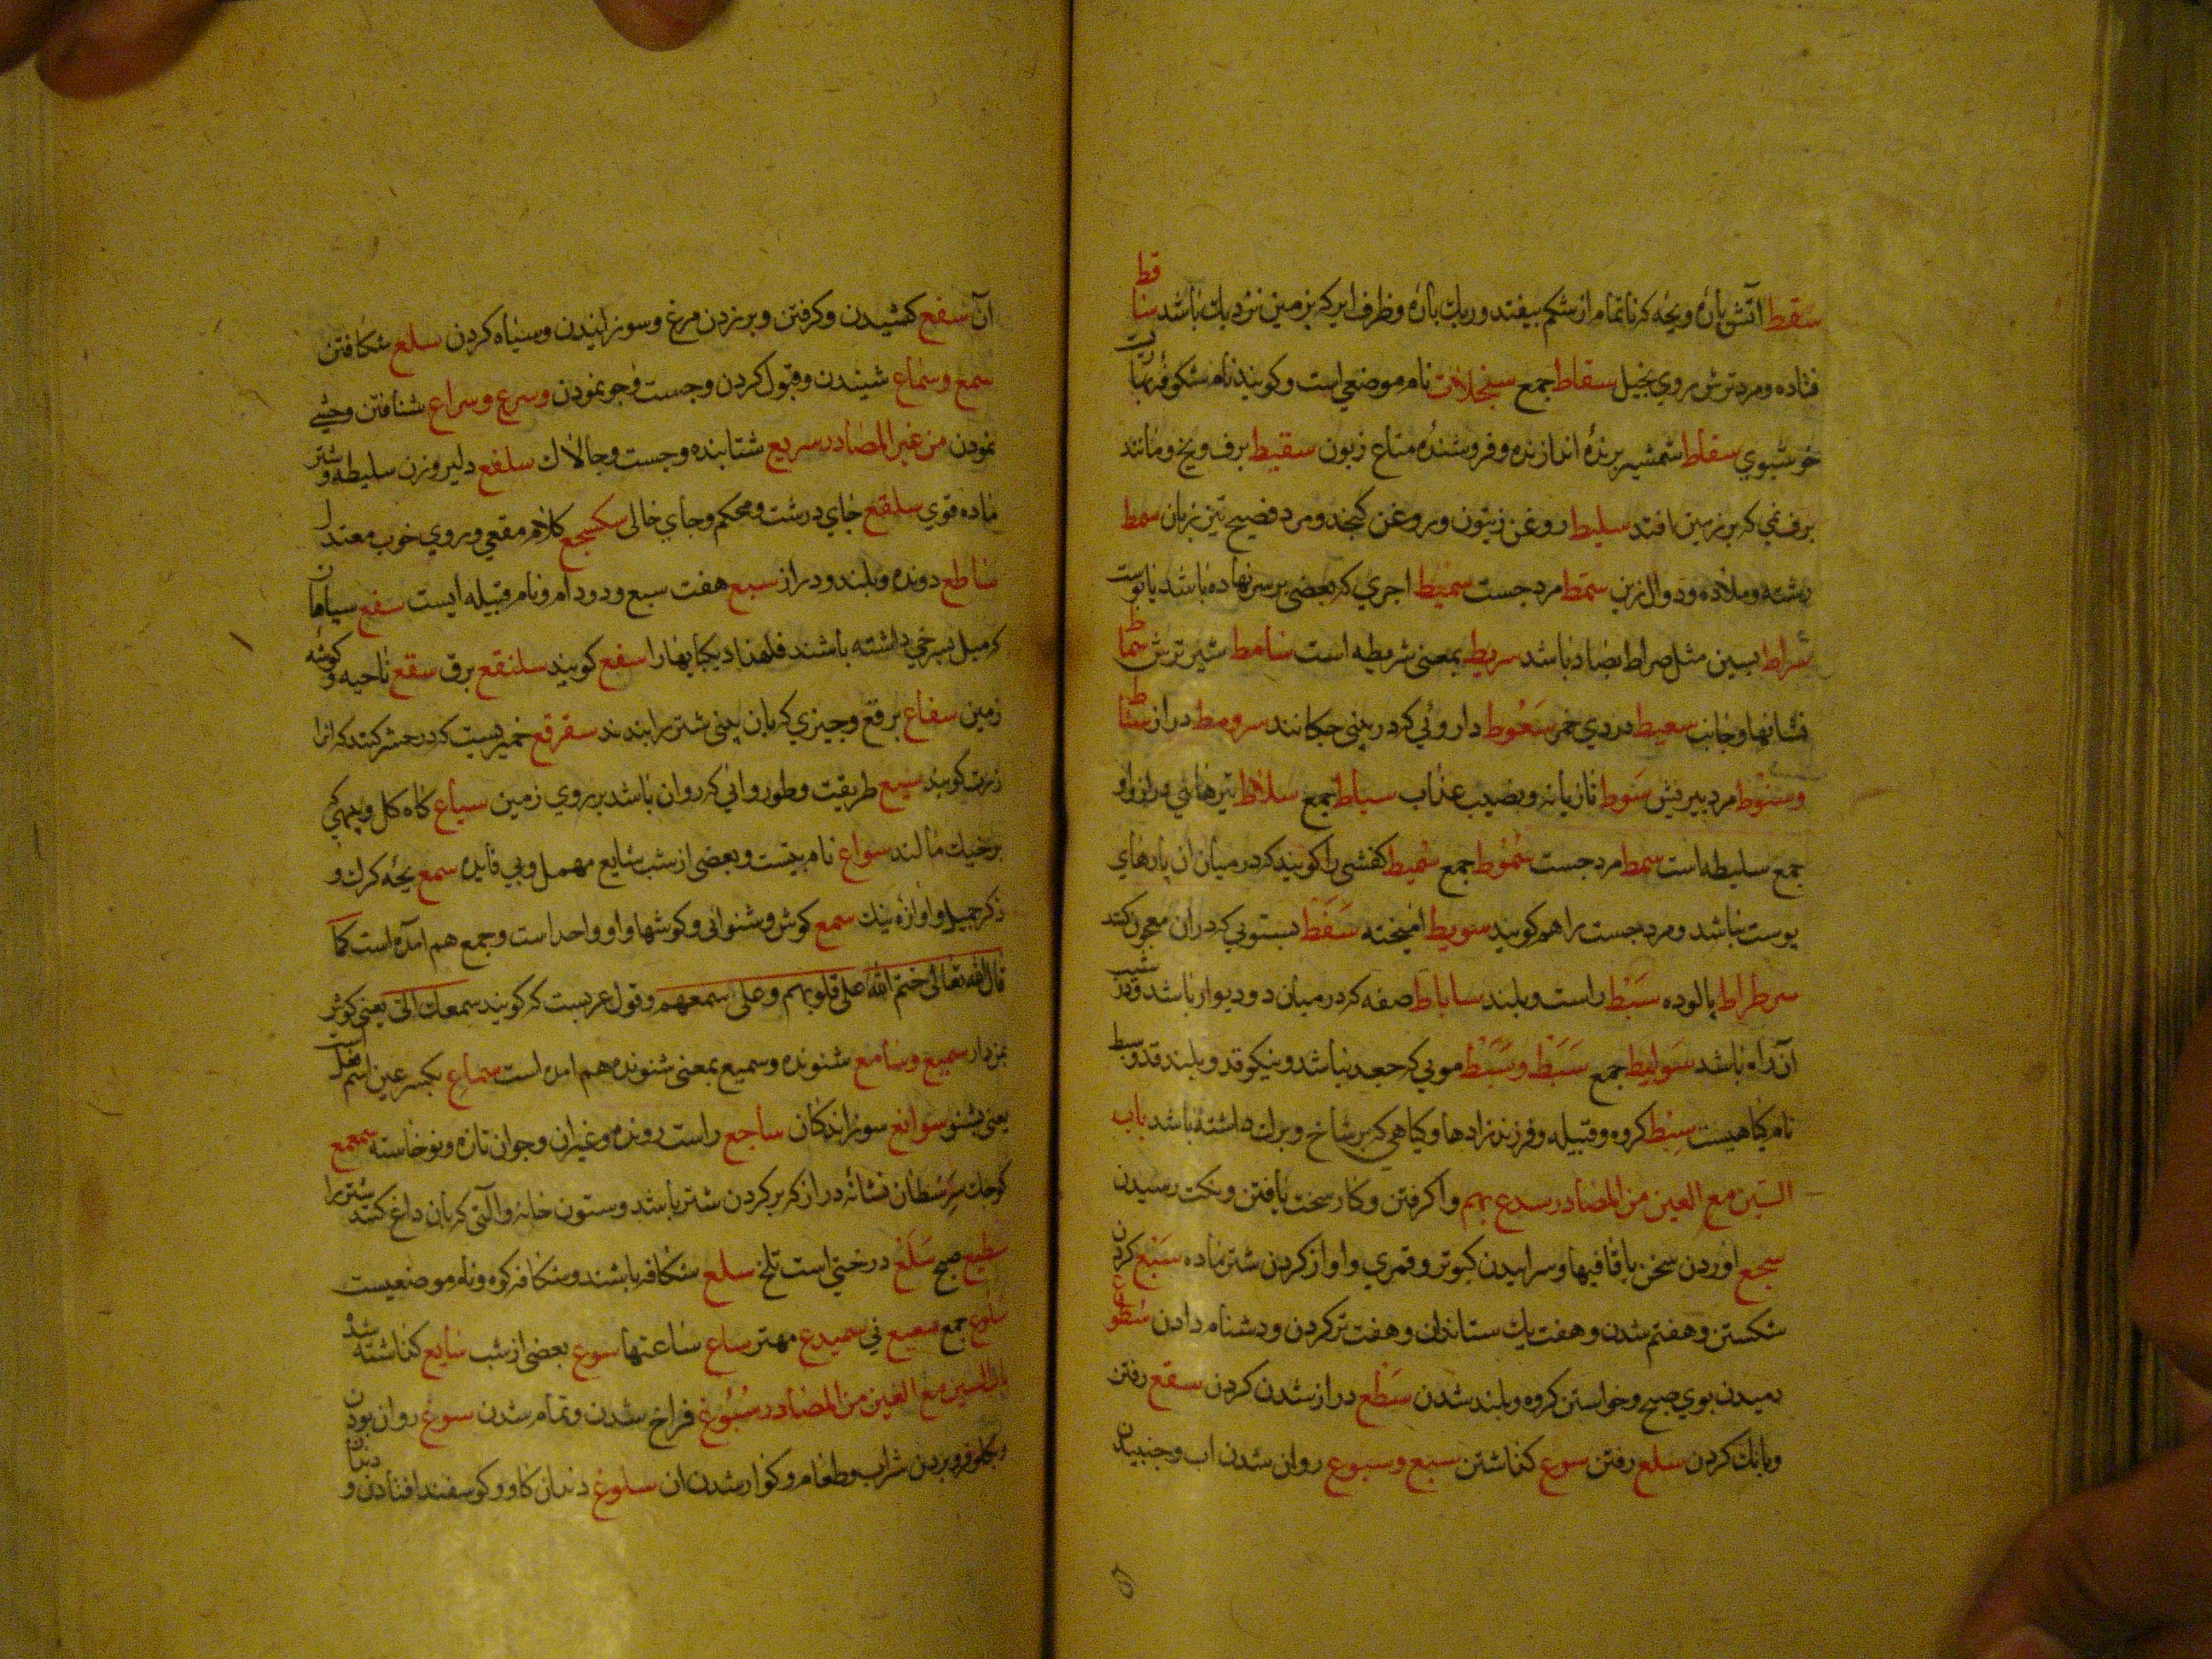 سقط آتش پاره و بچه که ناتمام از شکم بیفتد و ریك پاره و طرف ابر که بزمین نزدیك باشد ساقط
فتاده و مرد ترش روي بخیل سقاط جمع سنجلاط نام موضعي است و کویند نام شکوفه
خوشبوي سقاط شمشیر برنده اندازنده و فروشنده متاع زبون سقیط برف و یخ و مانند
برف نمي که بر زمین افتد سلیط روغن زیتون و روغن کنجد و مرد فصیح تیز زبان سمط
رشته و قلاده و دوال زین سمط مرد جست سمیط اجري که بعضي بر سر نهاده باشد یا پوست
سراط بسین مثل صراط بصاد باشد سریط بمعنی شریطه است سامط شیر ترش سماط
نشانها و جانب سعیط دردي خمر سعوط داروئي که در بیني جکانند سرومط دراز سناط
و سنوط مرد بیریش سوط تازیانه و نصیب عذاب سیاط جمع سلاط تیرهای دراز و او
جمع سلیطه است سمط مرد جست سموط جمع سمیط کفشی را کویند که در میان ان پارهاي
پوست نباشد و مرد جست را هم کویند سویط امیخته سفط سبتویي که در ان معجون کنند
سرطراط پالوده سبط راست و بلند ساباط صفه که در میان دو دیوار باشد و در شیب
آن راه باشد سوابیط جمع سبط و سبط مویي که جعد نباشد و نیکو قد و بلند قد و سبط
نام کیاهیست سبط کروه و قبیله و فرزند زادها و کیاهي که بر شاخ و برك داشته باشد باب
السین مع العین من المصادر سدع بهم واکرفتن و کار سخت یافتن و نکبت رسیدن
سجع اوردن سخن با قافیها و سراییدن کبوتر و قمري و اواز کردن شتر ماده سبع کردن
شکستن و هفتم شدن و هفت یك ستاندن و هفت تر کردن و دشنام دادن سطوع
دمیدن بوي صبح و خواستن کروه و بلند شدن سطع دراز شدن کردن سقع رفتن
و بانك کردن سلع رفتن سوع کذاشتن سیع و سیوع روان شدن اب و جنبیدن
آن سفع کشیدن و کرفتن و بر زدن مرغ و سوزانیدن و سیاه کردن سلع شکافتن
سمع و سماع شنیدن و قبول کردن و جست و جو نمودن و سرع و سراع شتافتن و جستی
نمودن من غیر المصادر سریع شتابنده و جست و جالاك سلفع دلیر و زن سلیطه و شتر
ماده قوي سلقع جاي درشت و محکم و جاي خالی سجع کلام مقفي و روي خوب معتدل
ساطع دونده و بلند و دراز سبع هفت سبع دد و دام و نام قبیله ایست سفع سیاهان
که میل بسرخي داشته باشند فلهذا دیکپایها را سفع کویند سلنقع برق سقع ناحیه و کوشه
زمین سقاع برقع و جیزي که بان بیني شتر را بندند سقرقع خمریست که در حبشه کنند که انرا
زرت کویند سیع طریقت و طور و ابي که روان باشد بر روي زمین سیاع کاه کل و پیهي که
بر خیك مالند سواع نام بتیست و بعضی از شب سایع مهمل و بي فایده سمع بچه کرك و
ذکر جمیل و اوازه نیك سمع کوش و شنوائي و کوشها و او واحد است و جمع هم آمده است کما
قال الله تعالی ختم الله علی قلوبهم وعلی سمعهم و قول عربست که کویند سمعك الی یعني کوش
بمن دار سمیع و سامع شنونده و سمیع بمعنی شنونده هم امده است سماع بکسر عین اسم فعل است
یعنی بشنو سوافع سوزاندکان ساجع راست رونده و غیر ان و جوان تازه و نو خاسته سمعمع
کوجك سر سطاع نشانه دراز که بر کردن شتر باشد و ستون خانه و التی که بان داغ کنند شتر را
سطیع صبح سلع درختي است تلخ سلع شکافه باشند و شکافه کوه و نام موضعیست
سلوع جمع سمیع ني سمیدع مهتر ساع ساعتها سوع بعضی از شب سایع کذاشته شده
باب السین مع الغین من المصادر سبوغ فراخ شدن و تمام شدن سوغ روان بودن
و بکلو فرو بردن شراب و طعام و کوار شدن ان سلوغ دندان کاو و کوسفند افتادن و دندان